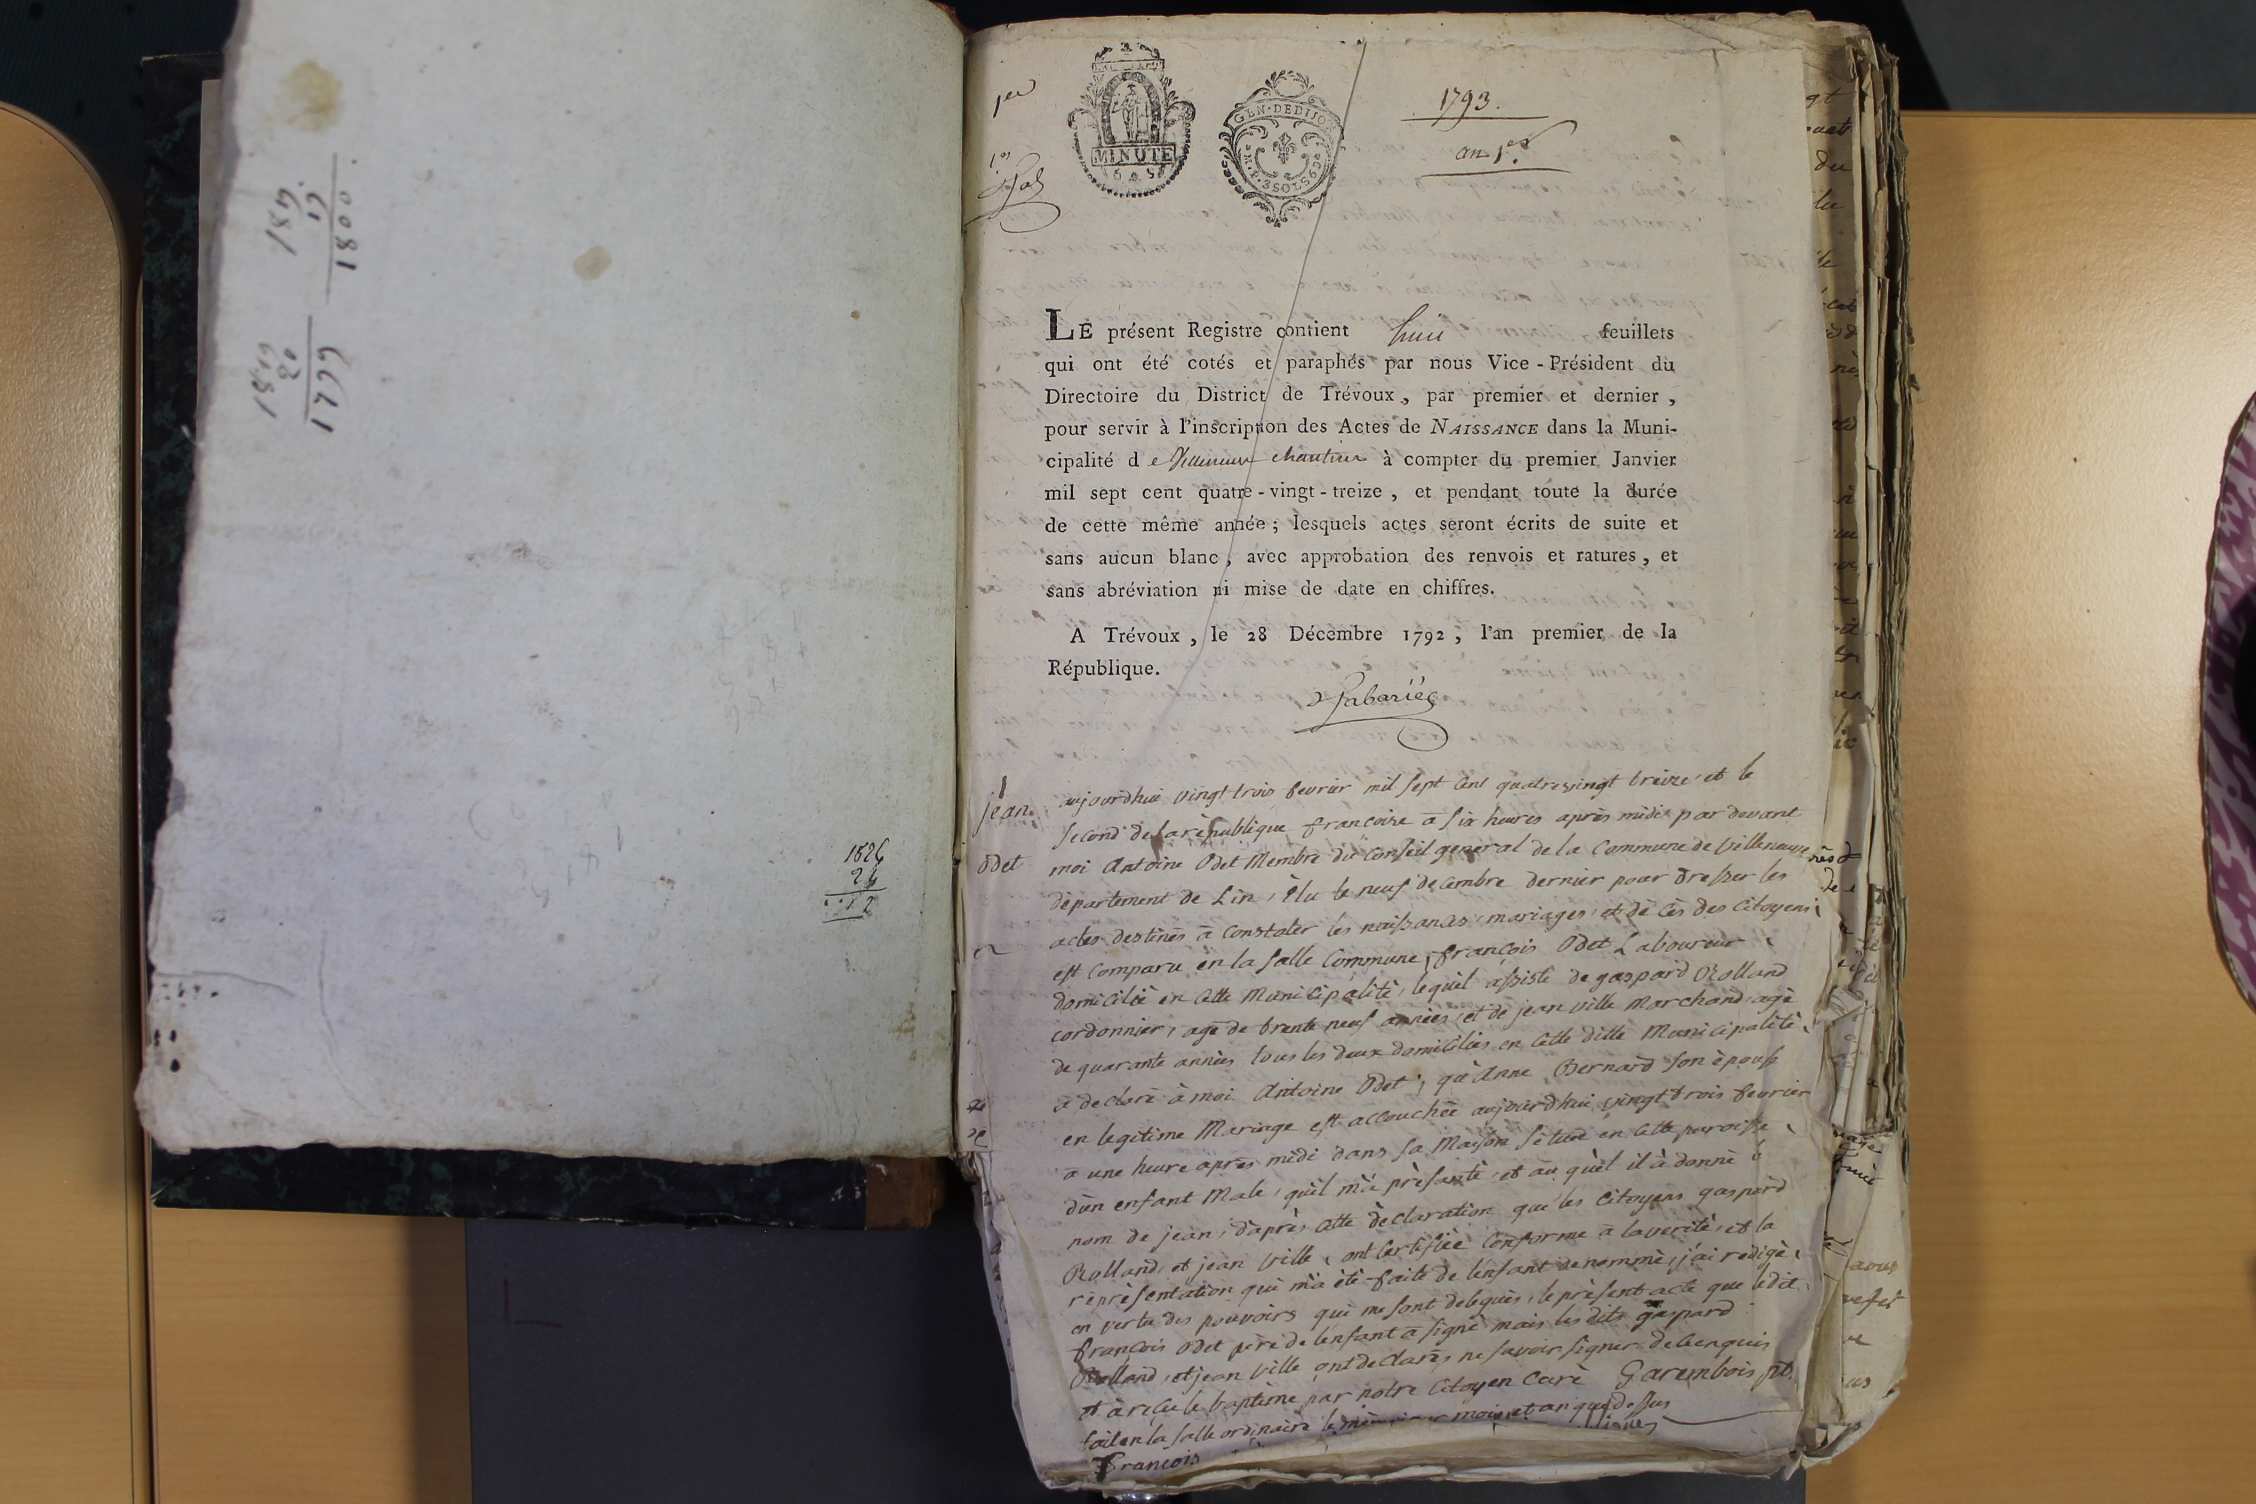 1800
1791
1826
24
12
1er
MINUTE
GEN. DE DIJON
3 SOLS 6 D
1793.
an 1er
LE présent Registre contient huit feuillets
qui ont été cotés et paraphés par nous Vice-Président du
Directoire du District de Trévoux, par premier et dernier,
pour servir à l'inscription des Actes de NAISSANCE dans la Muni-
cipalité de Villeneuve chantine à compter du premier Janvier
mil sept cent quatre-vingt-treize, et pendant toute la durée
de cette même année; lesquels actes seront écrits de suite et
sans aucun blanc, avec approbation des renvois et ratures, et
sans abréviation ni mise de date en chiffres.
A Trévoux, le 28 Décembre 1792, l'an premier de la
République.
jean
odet
aujourdhui vingt trois fevrier mil sept cent quatrevingt treize et le
second de la république francoise à six heures après midi par devant
moi Antoine Odet Membre du conseil general de la Commune de Villeneuve
département de Lin, élu le neuf decembre dernier pour dresser les
actes destinés à constater les naissances, mariages, et décès des citoyens
est comparu en la salle Commune, françois Odet Laboureur
domicilié en cette Municipalité, lequel assisté de gaspard Rolland
cordonnier, agé de trente neuf années, et de jean ville marchand agé
de quarante années tous les deux domiciliés en cette ditte Municipalité
a declaré à moi Antoine Odet, qu'Anne Bernard son épouse
en legitime Mariage est accouchée aujourdhui vingt trois fevrier
à une heure après midi dans sa Maison située en cette paroisse
d'un enfant Male, qu'il m'a présenté, et au quel il à donné le
nom de jean, d'après cette déclaration que les citoyens gaspard
Rolland, et jean ville, ont certifiée conforme à la verité, et la
représentation qui m'a été faite de lenfant denommé, j'ai redigé,
en vertu des pouvoirs qui me sont delegués, le présent acte que ledit
françois odet père de lenfant à signé mais les dits gaspard
Rolland, et jean ville ont declarés ne savoir signer de ce enquis
et à reçu le baptême par notre Citoyen Curé Garembois pt.
fait en la salle ordinaire mois et an que dessus
françois